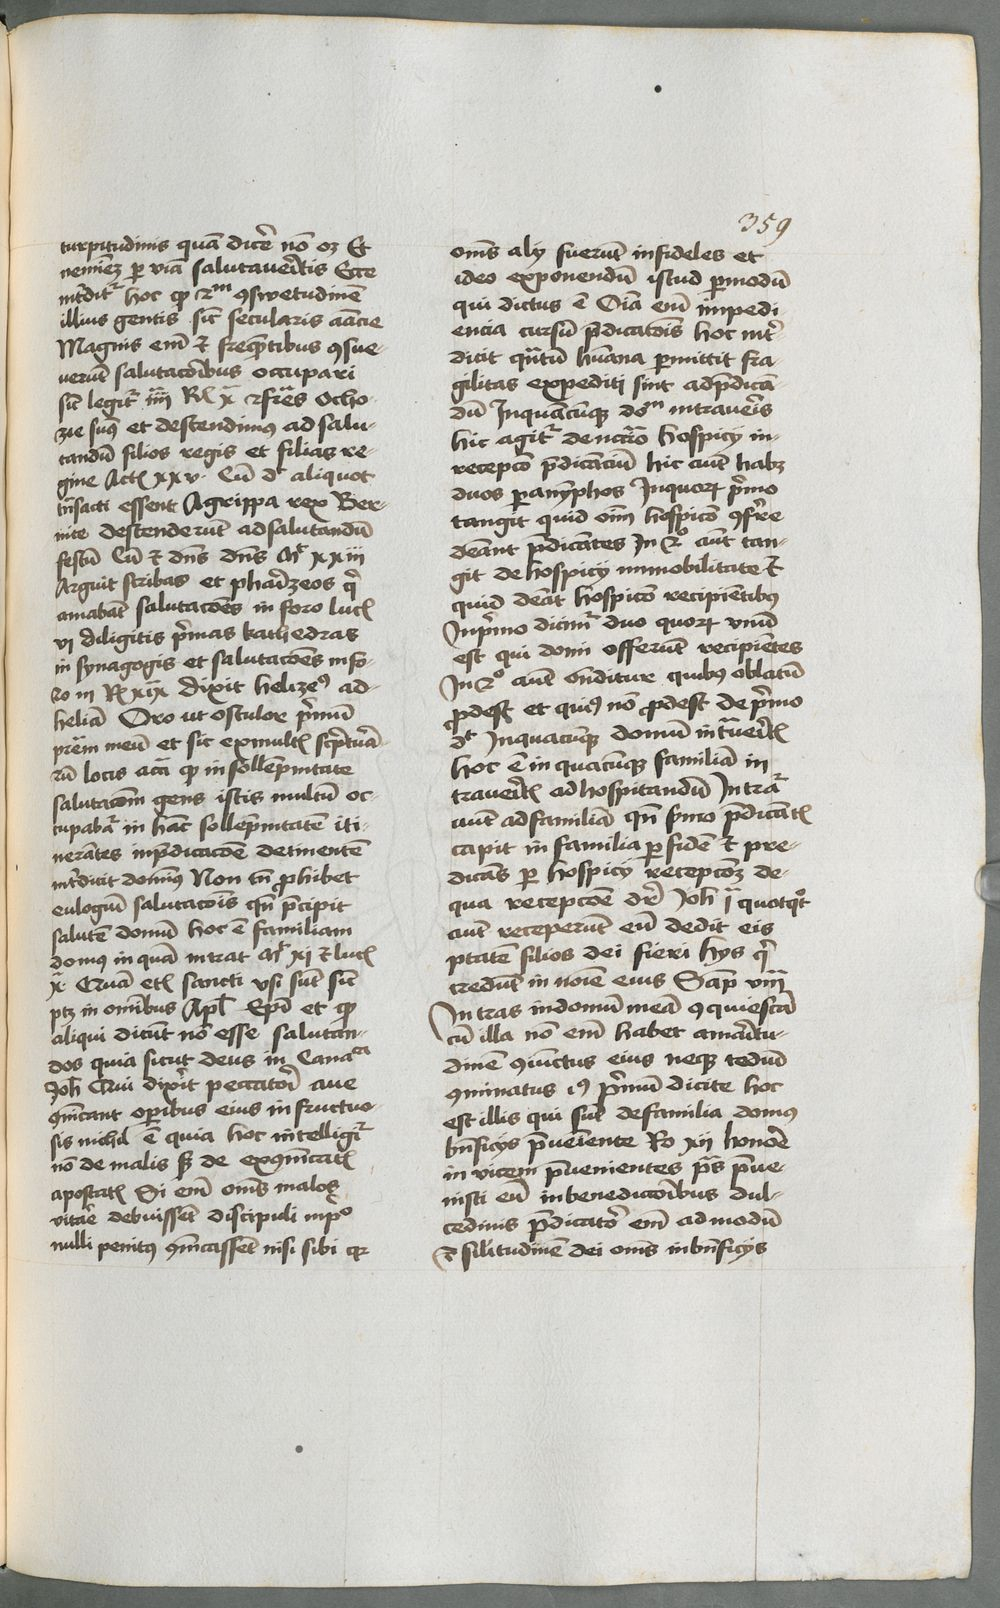 359
turpitudinis quā dicē nō oꝫ Et
neminēꝫ ꝑ viā salutaueritis Ecce
hoc ꝙ ꝯswetudinē
illius gentis sic͛ secularis
Magnis em̄ et frequētibus ꝯsue-
uerūt salutacōibus occupari
sic͛ legit͛ iiii R͛ x ꝯ fr̄es Ocho-
zie sumꝰ et descendimꝰ ad salu-
tandū filios regis et filias re-
gine Act͛ xxv Cū d͛ aliquot
essent Agrippa rex Ber-
nice descenderūt ad salutandū
festū Cū et dn̄s dn̄s M͛ xxiii
Arguit scribas et pharizeos
amabāt salutacōes in foro luc͛
xi diligitis p̄mas kathedras
in synagogis et salutacōes in fo-
ro iii R͛ xix dixit helizeꝰ ad
heliā Oro ut osculer p̄mum
pr̄em meū et sic ex mult͛
rū locis ꝙ in sollēpnitate
salutacōm gens istis multū oc-
cupabat͛ in hāc sollēpnitatē iti-
nerātes in p̄dicacōe detinentē
dominꝰ Non tn̄ ꝓhibet
eulogiū salutacōis p̄cipit
salutē domū hoc ē familiam
domus in quā intrat M͛ xi et luc͛
x Quā et͛ sancti vsi sūt sic͛
ptꝫ in omībus Apl͛ Ep̄i et ꝙ
aliqui dicūt nō esse salutan-
dos quia sicut deus in Cana
Joh͛ Qui dixit peccatori aue
ꝯmīcant opibus eius in fructuo-
sis nichil ē quia hoc intelligit͛
nō de malis sꝫ de exꝯmīcat͛
apostat͛ Si em̄ om̄s malos
vitare debuissēt discipuli in pͦ
nulli penitꝰ ꝯmīcassēt nisi sibi
om̄s alij fuerūt infideles et
ideo exponendū istud ꝑ modū
qui dictus ē Oīa em̄ impedi-
encia cursū p̄dicatōis hoc
dicit quātū hūana ꝑmittit fra-
gilitas expediti sint ad p̄dicā-
dū Inquācūqꝫ doᵐ intraueris
hic agit͛ de hospicij in
recepcōe p̄dicāciū hic aut̄ habꝫ
duos ꝑanȳphos Inquoꝝ p̄mo
tangit quid oīm hospicio ꝯferre
debeāt p̄dicātes In 2ͦ aut̄ tan-
git de hospicij immobilitate et
quid debeāt hospicio recipientibꝰ
In p̄mo dicim͛ duo quoꝝ vnū
est qui domi offerūt recipiētes
In 2ͦ aut̄ onditur quibꝰ oblatū
ꝓdest et quibꝰ nō ꝓdest de p̄mo
d͛ Inquacūqꝫ domum int͛ueri͛
hoc ē in quacūqꝫ familiā in
traueri͛ ad hospitandū Intrat͛
aut̄ ad familiā qn̄ p̄mo p̄dicat͛
capit in familia ꝑ fidē et pre-
dicās ꝑ hospicij recepcōeꝫ de
qua recepcōe dr̄ Joh͛ i quotqͦt
aut̄ receperūt eū dedit eis
ptātē filios dei fieri hys
credūt in noīe eius Sap͛ viii
Intras in domū meā ꝯquiescā
cū illa nō em̄ habet amāritu-
dinē ꝯuictus eius neqꝫ tediū
ꝯuinatus p̄mum dicite hoc
est illis qui sūt de familia domꝰ
bn̄ficijs p̄ueniente Ro xij honorē
in vicem p̄uenientes p̄s p̄ue-
nisti eū in benedictōibus dul-
cedinis p̄dicatoꝛ em̄ ad modū
et silitudinē dei om̄s in bn̄ficijs